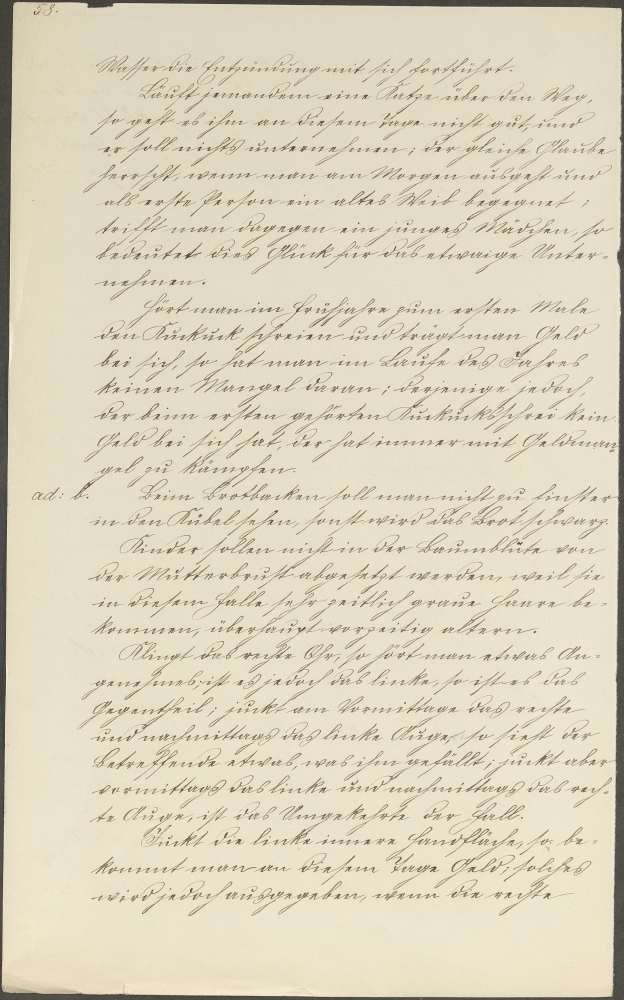 58.
Wasser die Entzündung mit sich fortführt.
Läuft jemandem eine Katze über den Weg,
so geht es ihm an diesem Tage nicht gut, und
er soll nichts unternehmen; der gleiche Glaube
herrscht, wenn man am Morgen ausgeht und
als erste Person ein altes Weib begegnet;
trifft man dagegen ein junges Mädchen, so
bedeutet dies Glück für das etwaige Unter-
nehmen.
Hört man im Frühjahre zum ersten Male
den Kuckuck schreien und trägt man Geld
bei sich, so hat man im Laufe des Jahres
keinen Mangel daran; derjenige jedoch,
der beim ersten gehörten Kuckucksschrei kein
Geld bei sich hat, der hat immer mit Geldman-
gel zu kämpfen.
ad: b. Beim Brotbacken soll man nicht zu finster
in den Kübel sehen, sonst wird das Brot schwarz.
Kinder sollen nicht in der Baumblüte von
der Mutterbrust abgesetzt werden, weil sie
in diesem Falle sehr zeitlich graue Haare be-
kommen, überhaupt vorzeitig altern.
Klingt das rechte Ohr, so hört man etwas An-
genehmes, ist es jedoch das linke, so ist es das
Gegentheil; juckt am Vormittage das rechte
und nachmittags das linke Auge, so sieht der
Betreffende etwas, was ihm gefällt; juckt aber
vormittags das linke und nachmittags das rech-
te Auge, ist das Umgekehrte der Fall.
Juckt die linke innere Handfläche, so be-
kommt man an diesem Tage Geld; solches
wird jedoch ausgegeben, wenn die rechte